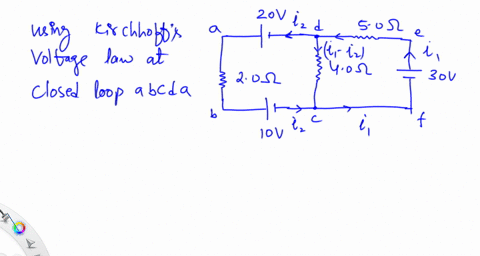 using Kirchhoff's
Voltage law at
closed loop abcda
20V
a
i₂
d
5.0Ω
e
(i₁-i₂)
4.0Ω
i₁
30V
2.0Ω
b
10V
i₂
c
i₁
f